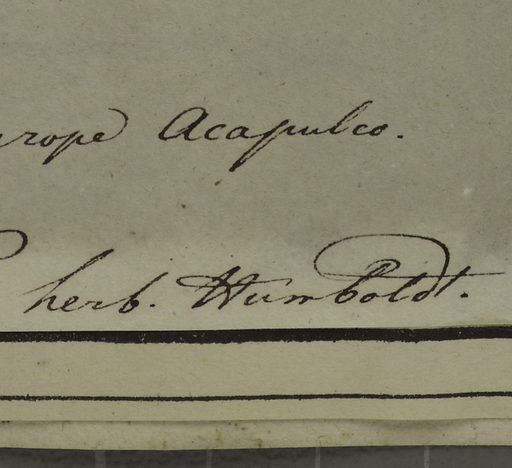 prope Acapulco.
herb. Humboldt.